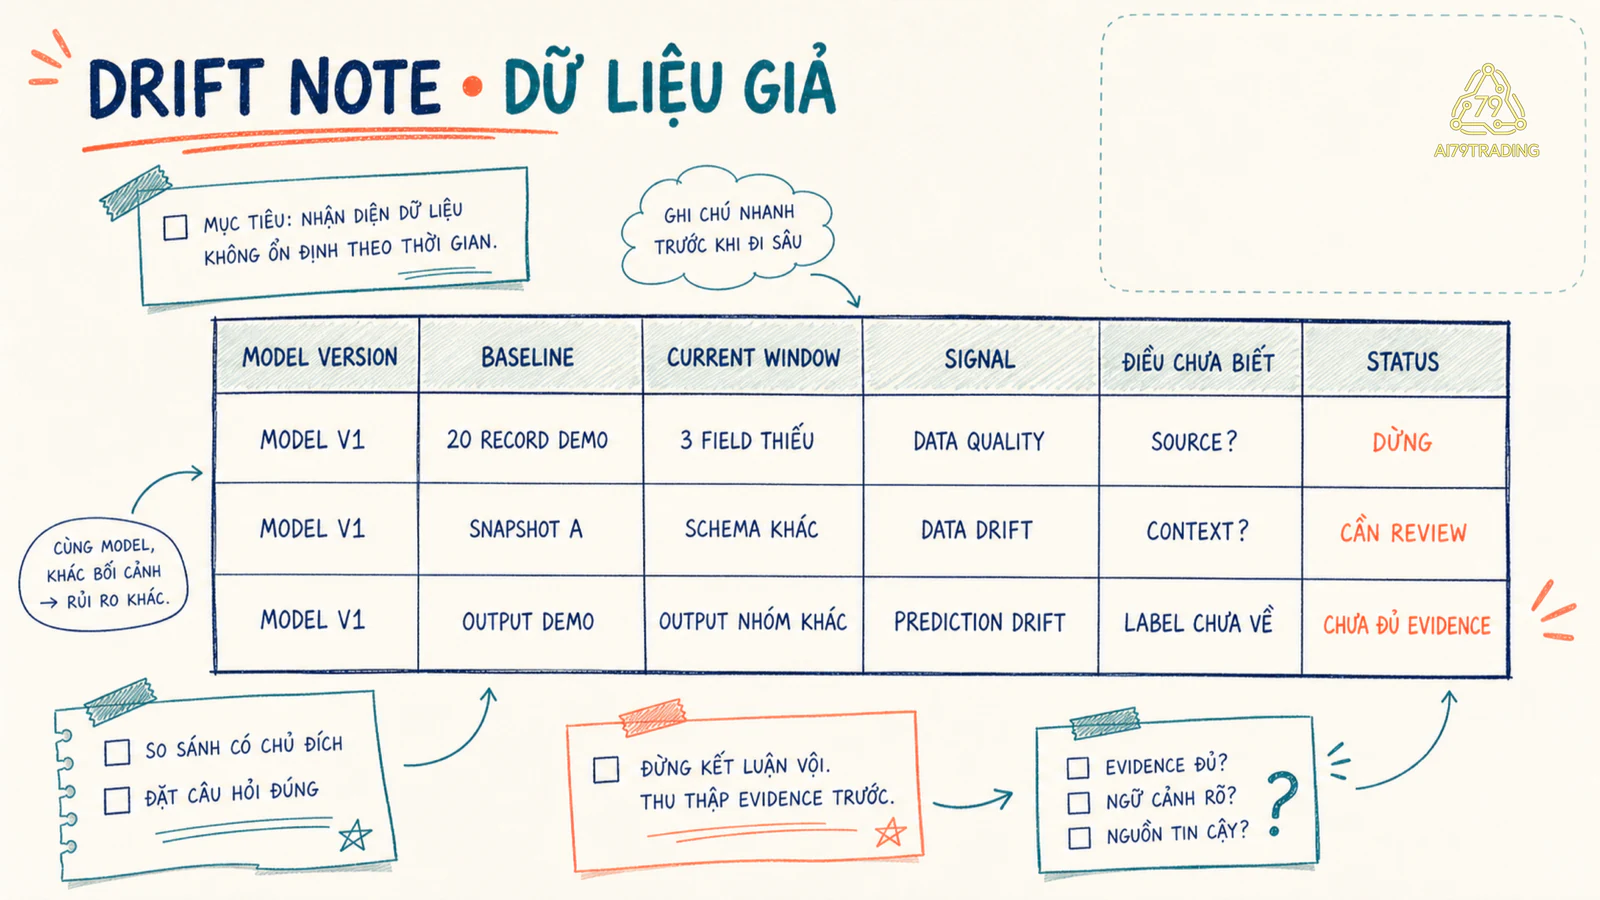 DRIFT NOTE • DỮ LIỆU GIẢ
79
AI79TRADING
MỤC TIÊU: NHẬN DIỆN DỮ LIỆU
KHÔNG ỔN ĐỊNH THEO THỜI GIAN.
GHI CHÚ NHANH
TRƯỚC KHI ĐI SÂU
MODEL VERSION BASELINE CURRENT WINDOW SIGNAL ĐIỀU CHƯA BIẾT STATUS
MODEL V1 20 RECORD DEMO 3 FIELD THIẾU DATA QUALITY SOURCE? DỪNG
MODEL V1 SNAPSHOT A SCHEMA KHÁC DATA DRIFT CONTEXT? CẦN REVIEW
MODEL V1 OUTPUT DEMO OUTPUT NHÓM KHÁC PREDICTION DRIFT LABEL CHƯA VỀ CHƯA ĐỦ EVIDENCE
CÙNG MODEL,
KHÁC BỐI CẢNH
→ RỦI RO KHÁC.
SO SÁNH CÓ CHỦ ĐÍCH
ĐẶT CÂU HỎI ĐÚNG
ĐỪNG KẾT LUẬN VỘI.
THU THẬP EVIDENCE TRƯỚC.
EVIDENCE ĐỦ?
NGỮ CẢNH RÕ?
NGUỒN TIN CẬY?
?